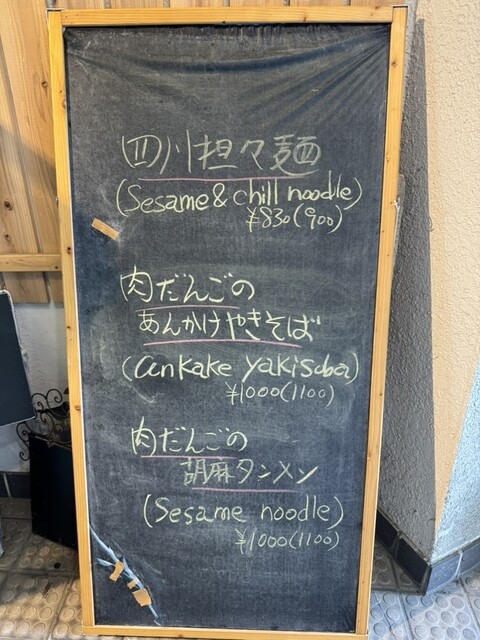 四川担々麺
(Sesame & chill noodle)
¥830(900)
肉だんごの
あんかけやきそば
(ankake yakisoba)
¥1000(1100)
肉だんごの
胡麻タンメン
(Sesame noodle)
¥1000(1100)